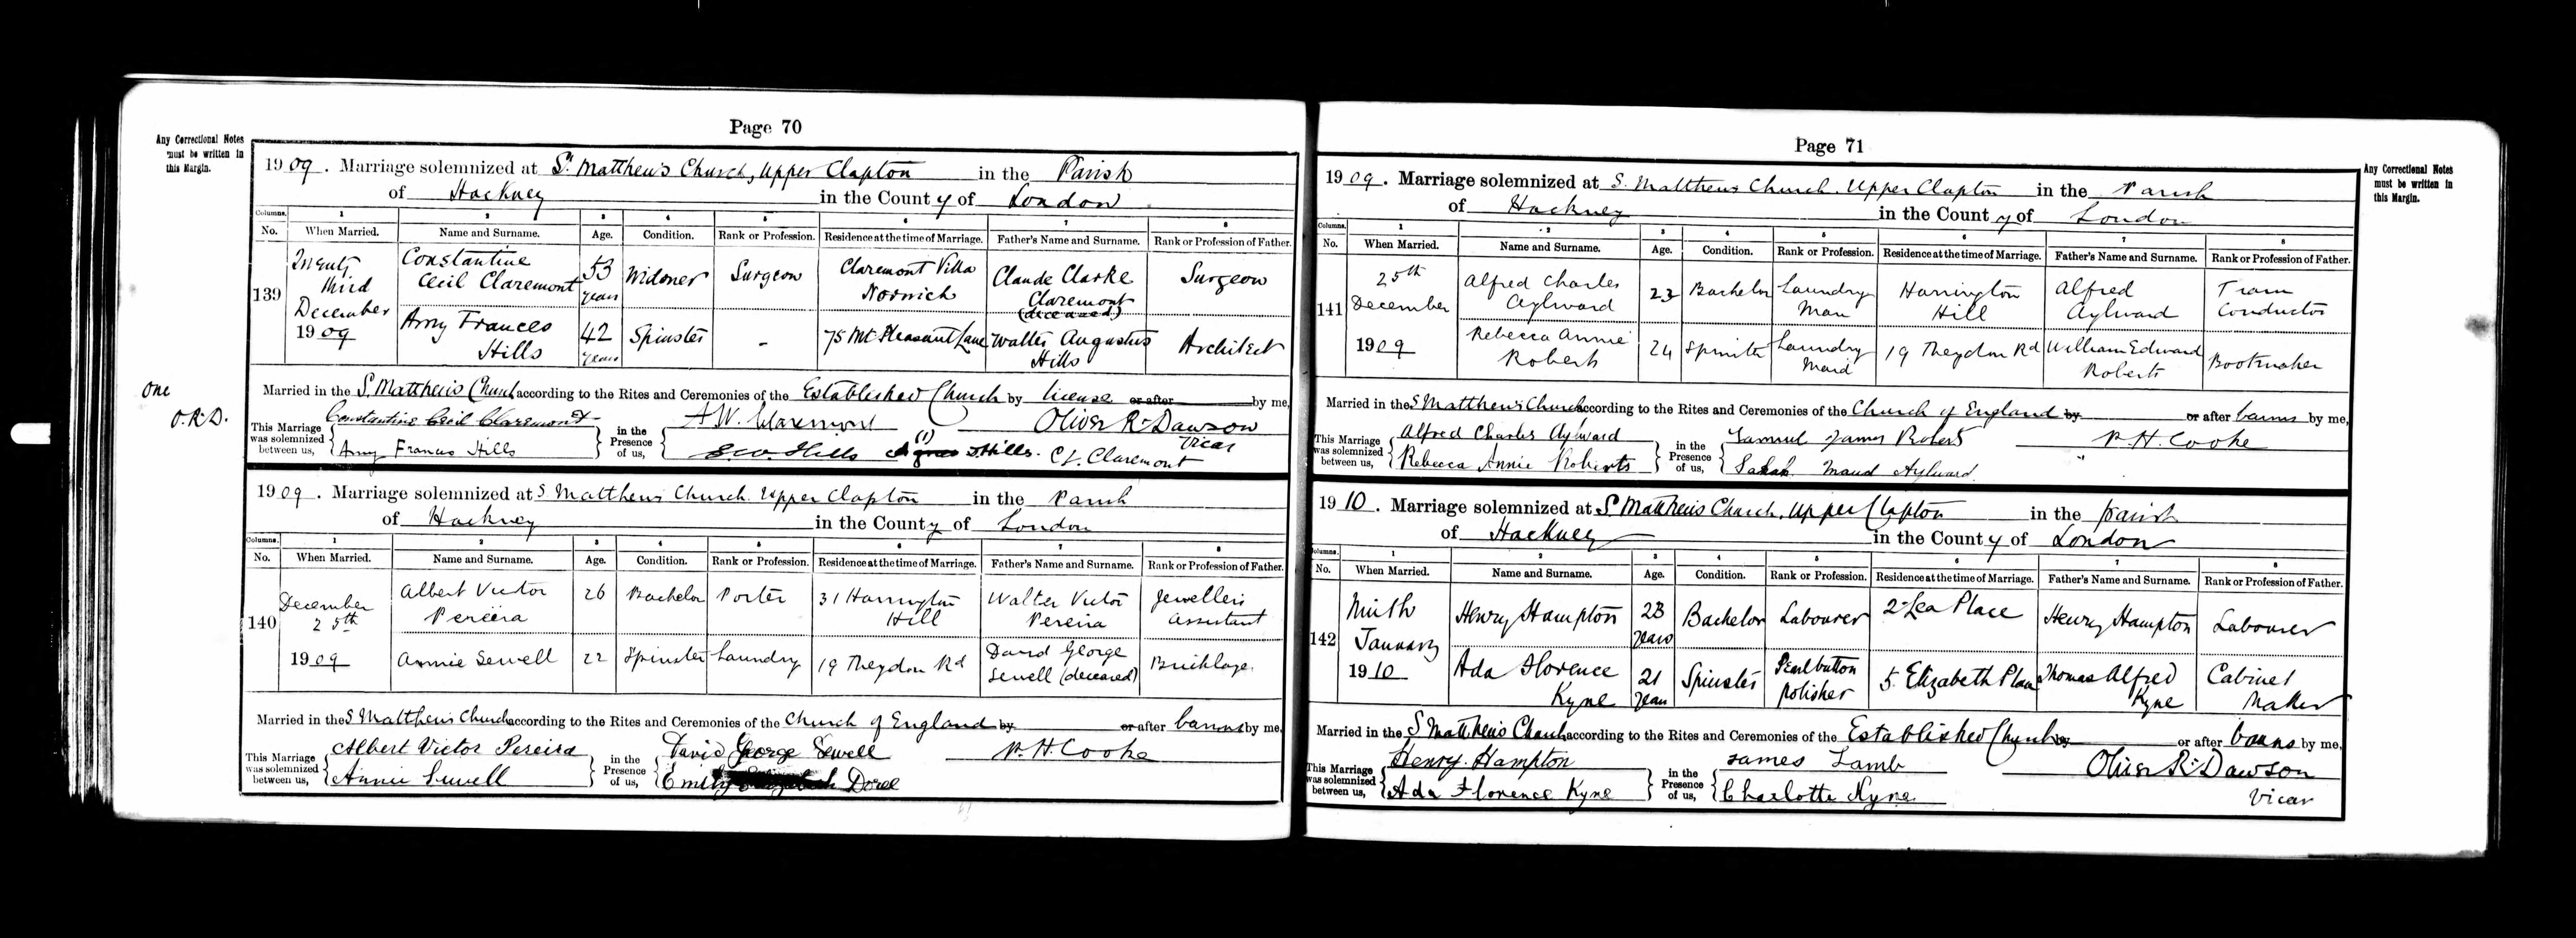 Page 70
Any Correctional Notes
must be written in
this Margin.
1909. Marriage solemnized at St. Matthew's Church, Upper Clapton in the Parish
of Hackney in the County of London
Columns. 1 2 3 4 5 6 7 8
No. When Married. Name and Surname. Age. Condition. Rank or Profession. Residence at the time of Marriage. Father's Name and Surname. Rank or Profession of Father.
139 Twenty third December 1909 Constantine Cecil Claremont 53 years Widower Surgeon Claremont Villa Norwich Claude Clarke Claremont (deceased) Surgeon
Amy Frances Hills 42 years Spinster - 75 Mt Pleasant Lane Walter Augustus Hills Architect
Married in the S. Matthew's Church according to the Rites and Ceremonies of the Established Church by license or after by me,
one
O.R.D.
This Marriage was solemnized between us, Constantine Cecil Claremont
Amy Frances Hills
in the Presence of us, Claremont
Hills (1) Hills. Claremont
Oliver R. Dawson
Vicar
1909. Marriage solemnized at S. Matthews Church. Upper Clapton in the Parish
of Hackney in the County of London
Columns. 1 2 3 4 5 6 7 8
No. When Married. Name and Surname. Age. Condition. Rank or Profession. Residence at the time of Marriage. Father's Name and Surname. Rank or Profession of Father.
140 December 25th 1909 Albert Victor Pereira 26 Bachelor Porter 31 Harrington Hill Walter Victor Pereira Jeweller's assistant
Annie Sewell 22 Spinster Laundry 19 Theydon Rd David George Sewell (deceased) Bricklayer
Married in the S Matthews Church according to the Rites and Ceremonies of the Church of England by or after banns by me,
This Marriage was solemnized between us, Albert Victor Pereira
Annie Sewell
in the Presence of us, David George Sewell
Emily
P. H. Cooke
Page 71
Any Correctional Notes
must be written in
this Margin.
1909. Marriage solemnized at S. Matthews Church. Upper Clapton in the Parish
of Hackney in the County of London
Columns. 1 2 3 4 5 6 7 8
No. When Married. Name and Surname. Age. Condition. Rank or Profession. Residence at the time of Marriage. Father's Name and Surname. Rank or Profession of Father.
141 25th December 1909 Alfred Charles Aylward 23 Bachelor Laundry Man Harrington Hill Alfred Aylward Tram Conductor
Rebecca Annie Roberts 24 Spinster Laundry Maid 19 Theydon Rd William Edward Roberts Bootmaker
Married in the S Matthews Church according to the Rites and Ceremonies of the Church of England by or after banns by me,
This Marriage was solemnized between us, Alfred Charles Aylward
Rebecca Annie Roberts
in the Presence of us, Samuel James Roberts
Sarah Maud Aylward.
P. H. Cooke
1910. Marriage solemnized at S. Matthew's Church, Upper Clapton in the parish
of Hackney in the County of London
Columns. 1 2 3 4 5 6 7 8
No. When Married. Name and Surname. Age. Condition. Rank or Profession. Residence at the time of Marriage. Father's Name and Surname. Rank or Profession of Father.
142 Ninth January 1910 Henry Hampton 23 years Bachelor Labourer 2 Lea Place Henry Hampton Labourer
Ada Florence Kyne 21 years Spinster Pearl button polisher 5. Elizabeth Place Thomas Alfred Kyne Cabinet Maker
Married in the S Matthew's Church according to the Rites and Ceremonies of the Established Church by or after banns by me,
This Marriage was solemnized between us, Henry Hampton
Ada Florence Kyne
in the Presence of us, James Lamb
Charlotte Kyne
Oliver R. Dawson
Vicar